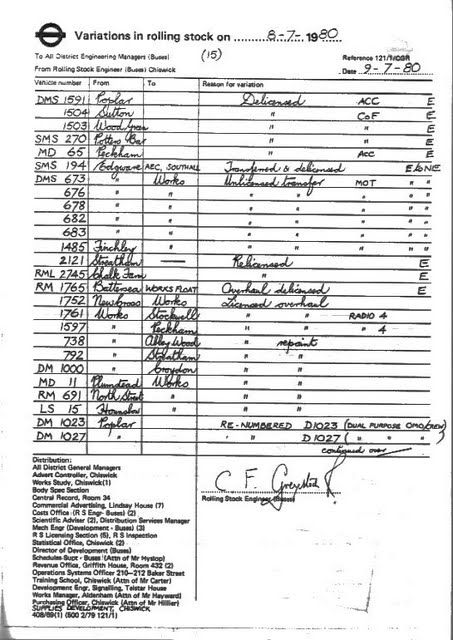 Variations in rolling stock on 8-7-1980
To All District Engineering Managers (Buses) (15) Reference 121/1/OSR
From Rolling Stock Engineer (Buses) Chiswick Date 9-7-80
Vehicle number From To Reason for variation
DMS 1591 Poplar Delicensed ACC E
1504 Sutton " CoF E
1503 Wood Green " " E
SMS 270 Potters Bar " " E
MD 65 Peckham " Acc E
SMS 194 Edgware AEC, SOUTHALL Transferred & delicensed E to NE
DMS 673 " Works Unlicensed transfer MOT " "
676 " " " " " " "
678 " " " " " " "
682 " " " " " " "
683 " " " " " " "
1485 Finchley " " " " " "
2121 Streatham — Relicensed E
RML 2745 Chalk Farm " E
RM 1765 Battersea WORKS FLOAT Overhaul delicensed E
1752 New Cross Works Licensed overhaul
1761 Works Stockwell " " RADIO 4
1597 " Peckham " " " 4
738 " Abbey Wood " repaint
792 " Streatham " "
DM 1000 " Croydon " "
MD 11 Plumstead Works " "
RM 691 North Street " " "
LS 15 Hounslow " " "
DM 1023 Poplar RE-NUMBERED D1023 (DUAL PURPOSE OMO/CREW)
DM 1027 " " " D1027 ( " " " )
continued over
Distribution:
All District General Managers
Advert Controller, Chiswick
Works Study, Chiswick(1)
Body Spec Section
Central Record, Room 34
Commercial Advertising, Lindsay House (7)
Costs Office (R S Engr- Buses) (2)
Scientific Adviser (2), Distribution Services Manager
Mech Engr (Development - Buses) (3)
R S Licensing Section (5), R S Inspection
Statistical Office, Chiswick (2)
Director of Development (Buses)
Schedules Supt - Buses (Attn of Mr Hyslop)
Revenue Office, Griffith House, Room 432 (2)
Operations Systems Officer 210-212 Baker Street
Training School, Chiswick (Attn of Mr Carter)
Development Engr, Signalling, Telstar House
Works Manager, Aldenham (Attn of Mr Hayward)
Purchasing Officer, Chiswick (Attn of Mr Hillier)
SUPPLIES DEVELOPMENT, CHISWICK
408/69(1) (500 2/79 121/1)
Rolling Stock Engineer (Buses)